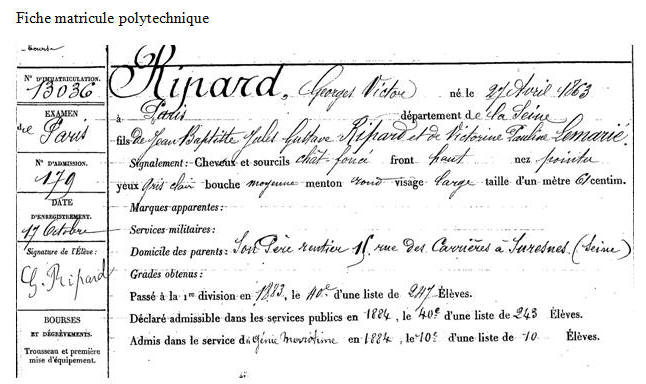 Fiche matricule polytechnique
Bourse
N° D'IMMATRICULATION.
13036
EXAMEN
de Paris
N° D'ADMISSION.
179
DATE
D'ENREGISTREMENT.
17 Octobre
Signature de l'Élève :
G. Ripard
BOURSES
ET DÉGRÈVEMENTS.
Trousseau et première
mise d'équipement.
Ripard, Georges Victor né le 27 Avril 1863
à Paris département de la Seine
fils de Jean Baptiste Jules Gustave Ripard et de Victorine Pauline Lemarié.
Signalement : Cheveux et sourcils chât. foncé front haut nez pointu
yeux gris clair bouche moyenne menton rond visage large taille d'un mètre 61 centim.
Marques apparentes :
Services militaires :
Domicile des parents : Son Père rentier 15, rue des Carrières à Suresnes (Seine)
Grades obtenus :
Passé à la 1re division en 1883, le 110e d'une liste de 247 Élèves.
Déclaré admissible dans les services publics en 1884, le 40e d'une liste de 243 Élèves.
Admis dans le service du génie maritime en 1884, le 10e d'une liste de 10 Élèves.